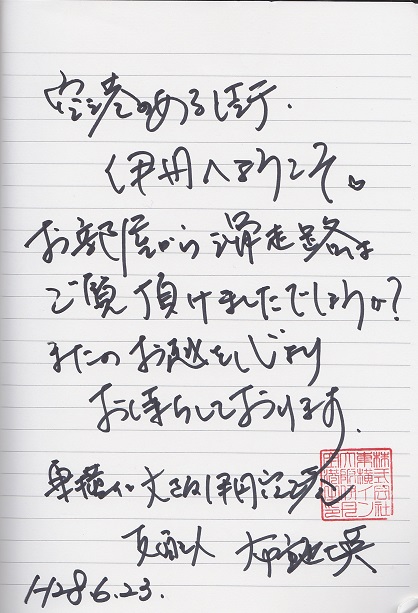 空港のある街、
伊丹へようこそ。
お部屋から滑走路は
ご覧頂けましたでしょうか?
またのお越を心より
お待ちしております。
東横イン大阪伊丹空港
支配人
H28.6.23.
株式会社
東横イン
大阪伊丹